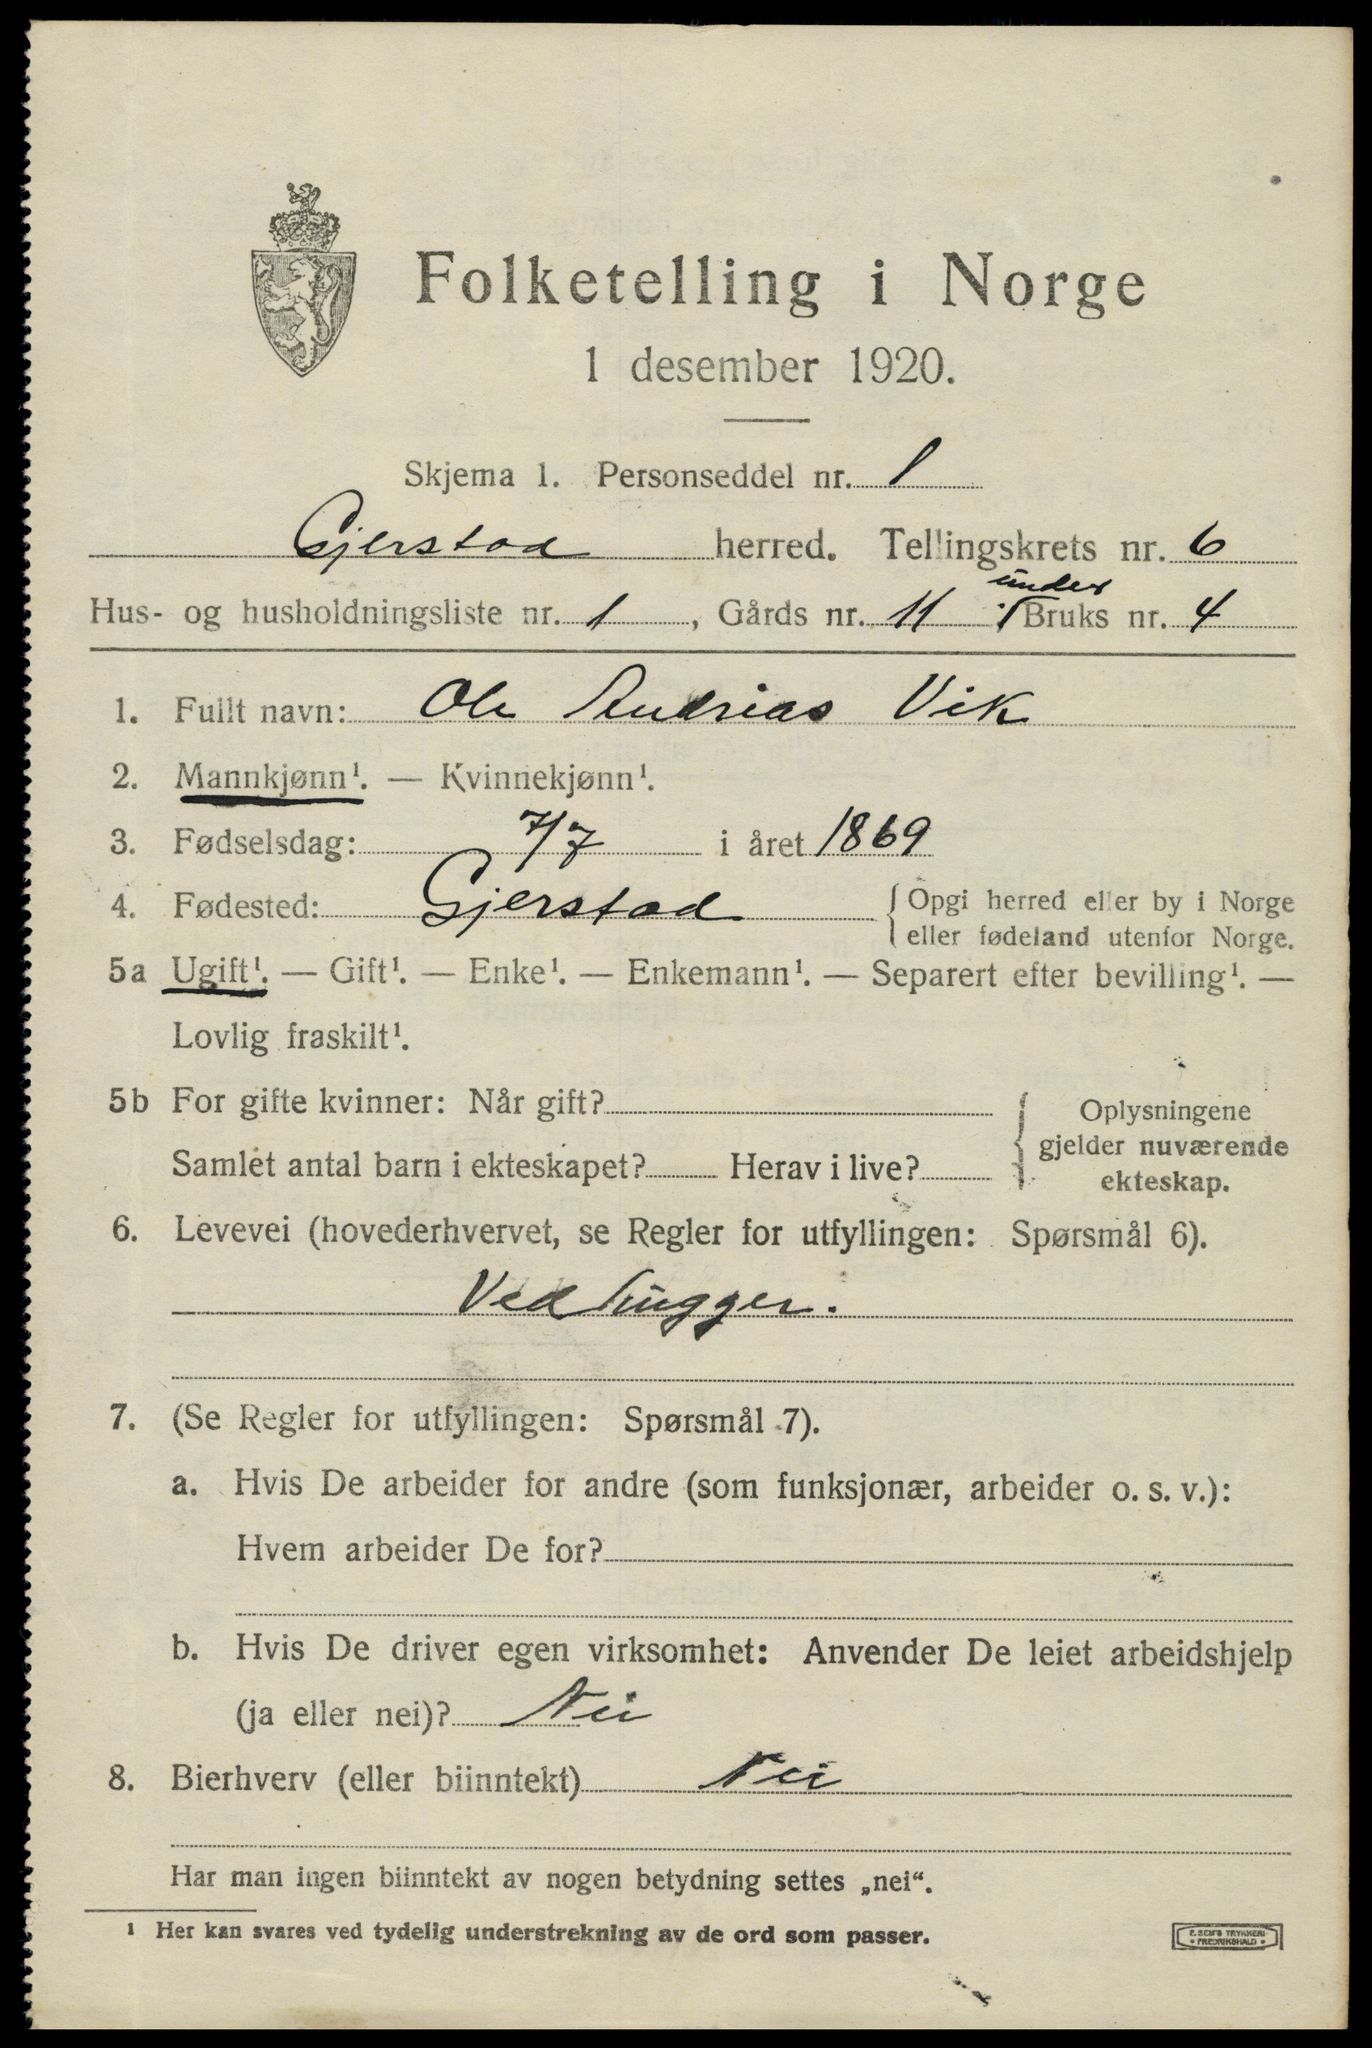 Folketelling i Norge
1 desember 1920.
Skjema 1. Personseddel nr. 1
Gjerstad herred. Tellingskrets nr. 6
under
Hus- og husholdningsliste nr. 1, Gårds nr. 11 Bruks nr. 4
1. Fullt navn: Ole Andrias Vik
2. Mannkjønn¹. — Kvinnekjønn¹.
3. Fødselsdag: 7/7 i året 1869
4. Fødested: Gjerstad { Opgi herred eller by i Norge
eller fødeland utenfor Norge.
5a Ugift¹. — Gift¹. — Enke¹. — Enkemann¹. — Separert efter bevilling¹. —
Lovlig fraskilt¹.
5b For gifte kvinner: Når gift? { Oplysningene
gjelder nuværende
Samlet antal barn i ekteskapet? Herav i live? ekteskap.
6. Levevei (hovederhvervet, se Regler for utfyllingen: Spørsmål 6).
Vedhugger.
7. (Se Regler for utfyllingen: Spørsmål 7).
a. Hvis De arbeider for andre (som funksjonær, arbeider o. s. v.):
Hvem arbeider De for?
b. Hvis De driver egen virksomhet: Anvender De leiet arbeidshjelp
(ja eller nei)? Nei
8. Bierhverv (eller biinntekt) Nei
Har man ingen biinntekt av nogen betydning settes „nei“.
¹ Her kan svares ved tydelig understrekning av de ord som passer.
E. SEM'S TRYKKERI
• FREDRIKSHALD •